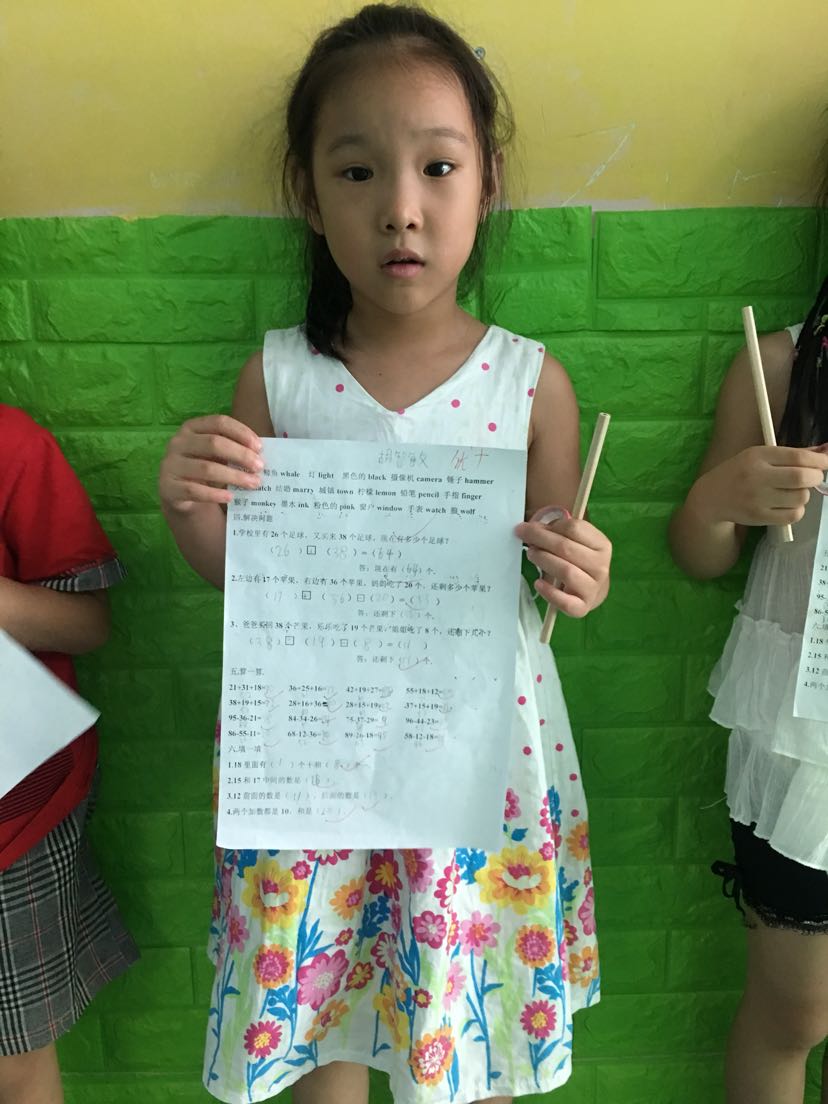 胡智敏 优+
鲸鱼 whale 灯 light 黑色的 black 摄像机 camera 锤子 hammer
match 结婚 marry 城镇 town 柠檬 lemon 铅笔 pencil 手指 finger
猴子 monkey 墨水 ink 粉色的 pink 窗户 window 手表 watch 狼 wolf
四.解决问题
1.学校里有 26 个足球，又买来 38 个足球，现在有多少个足球？
(26) + (38) = (64)
答：现在有 (64) 个.
2.左边有 17 个苹果，右边有 36 个苹果，妈妈吃了 20 个，还剩多少个苹果？
(17) + (36) - (20) = (33)
答：还剩下 ( ) 个.
3、爸爸买回 38 个芒果，乐乐吃了 19 个芒果，姐姐吃了 8 个，还剩下几个？
(38) - (19) - (8) = (11)
答：还剩下 (11) 个.
五.算一算.
21+31+18= 36+25+16= 42+19+27= 55+18+12=
38+19+15= 28+16+36= 28+15+19= 37+15+19=
95-36-21= 84-34-26= 75-37-29= 96-44-23=
86-55-11= 68-12-36= 89-26-18= 58-12-18=
六.填一填
1.18 里面有 (1) 个十和 (8) 个一
2.15 和 17 中间的数是 (16)
3.12 前面的数是 (11)，后面的数是 ( ).
4.两个加数都是 10，和是 (20)